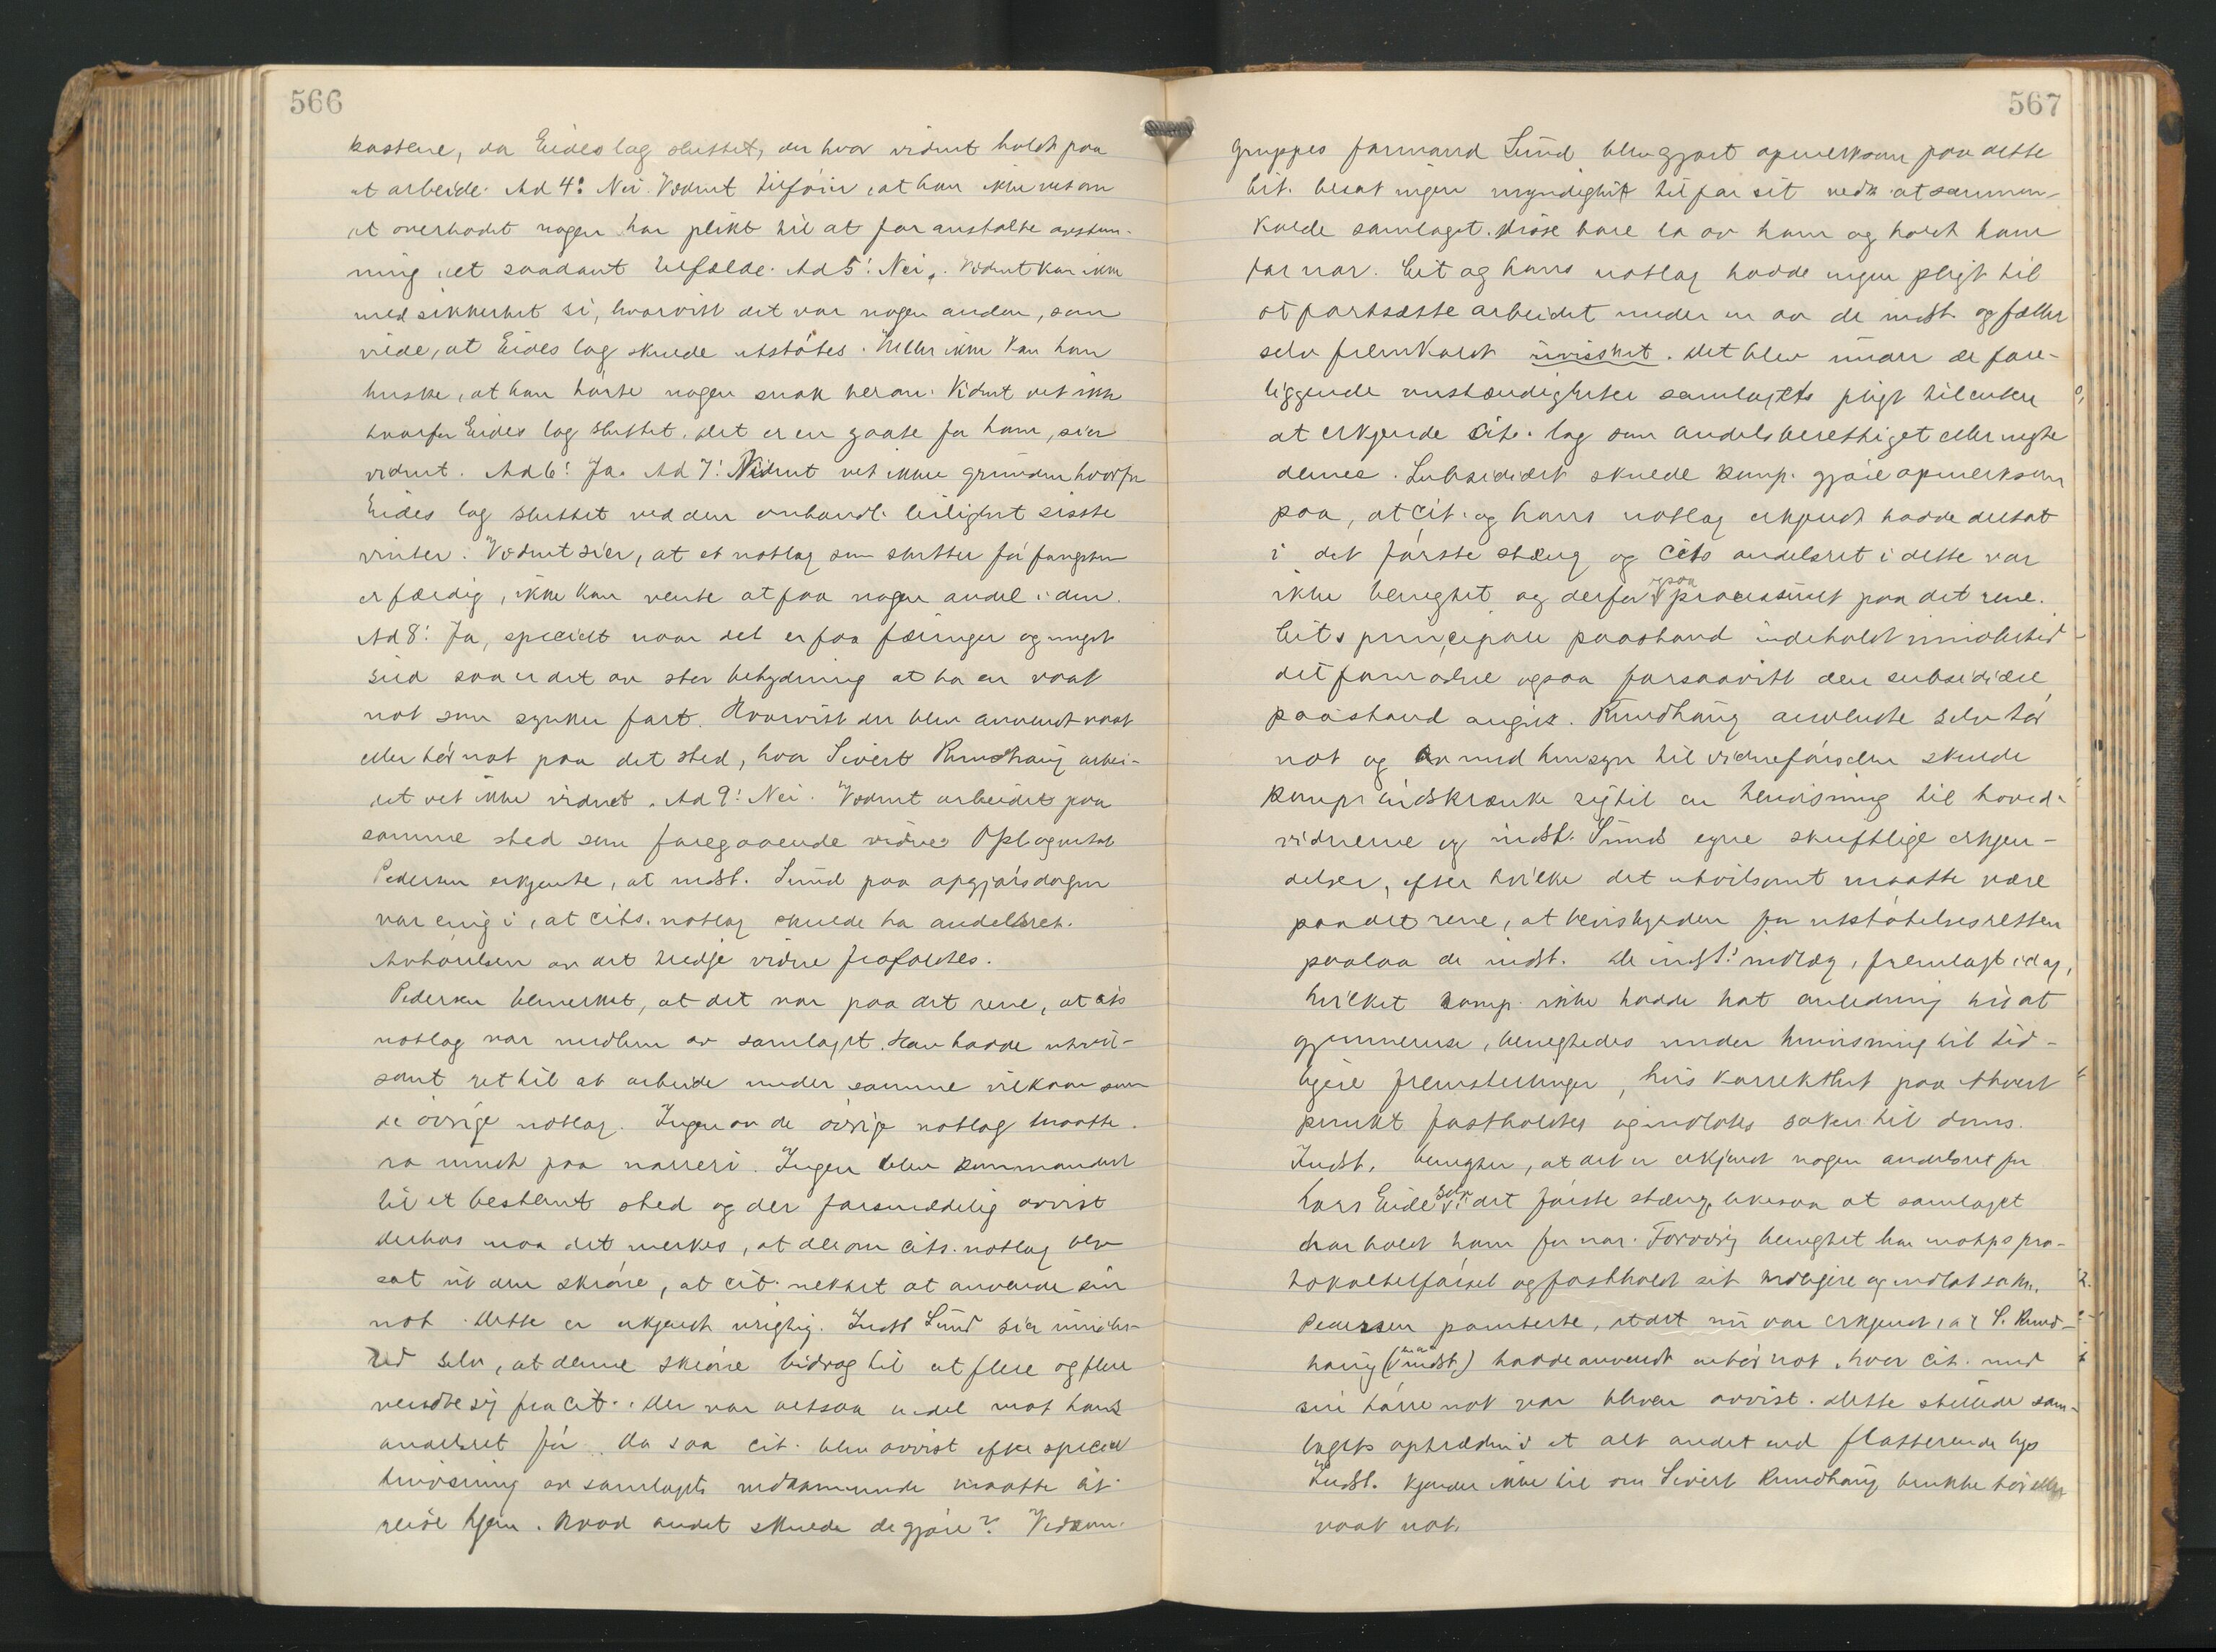 566
kastene, da Eides lag sluttet, der hvor vidnet holdt paa
at arbeide. Ad 4: Nei. Vidnet tilføier, at han ikke vet om
at overhodet nogen har plikt til at foranstalte avstem-
ning i et saadant tilfælde. Ad 5: Nei. Vidnet kan ikke
med sikkerhet si, hvorvitt det var nogen anden, som
vilde, at Eides lag skulde utstøtes. Heller ikke kan han
huske, at han hørte nogen snak herom. Vidnet vet ikke
hvorfor Eides lag sluttet, det er en gaate for ham, sier
vidnet. Ad 6: Ja. Ad 7: Vidnet vet ikke grunden hvorfor
Eides lag sluttet ved den omhandl. leilighet sisste
vinter. Vidnet sier, at et notlag som slutter før fangsten
er færdig, ikke kan vente at faa nogen andel i den.
Ad 8: Ja, specielt naar det er paa færinger og meget
sild saa er det av stor betydning at ha en vaat
not som synker fort. Hvorvitt der blev anvendt vaat
eller tør not paa det sted, hvor Sivert Rundhaug arbei-
det vet ikke vidnet. Ad 9: Nei. Vidnet arbeidet paa
samme sted som foregaaende vidne. Opl. og vedtat
Pedersen erkjente, at indst. Sund paa opgjørsdagen
var enig i, at cits. notlag skulde ha andelsret.
Avhørelsen av det tredje vidne frafaldtes.
Pedersen bemerket, at det var paa det rene, at cits
notlag var medlem av samlaget. Han hadde utvil-
somt ret til at arbeide under samme vilkaar som
de øvrige notlag. Ingen av de øvrige notlag maatte
ro rundt paa narreri. Ingen blev kommandert
til et bestemt sted og der forsmædelig avvist
Derhos maa det merkes, at der om cits. notlag blev
sat ut den skrøne, at cit. nektet at anvende sin
not. Dette er erkjendt urigtig. Indst Sund sier imidler-
tid selv, at denne skrøne bidrog til at flere og flere
vendte sig fra cit. Der var altsaa andel mot hans
andelsret før. Da saa cit. blev avvist efter speciel
henvisning av samlagets vedkommende maatte cit.
reise hjem. Hvad andet skulde de gjøre? Vedkom.
567
gruppes formand Sund blev gjort opmerksom paa dette
Cit. besat ingen myndighet til for sit vedk. at sammen-
kalde samlaget. Disse bare lo av ham og holdt ham
for nar. Cit og hans notlag hadde ingen pligt til
at fortsætte arbeidet under en av de indst. og fælles
selv fremkaldt uvisshet. Det blev under de fore-
liggende omstændigheter samlagets pligt til enten
at erkjende cits. lag som andelsberettiget eller negte
denne. Subsidiært skulde komp. gjøre opmerksom
paa, at cit. og hans notlag erkjendt hadde deltat
i det første stæng og cits andelsret i dette var
ikke benegtet og derfor ogsaa processuelt paa det rene.
Cits principale paastand indeholdt imidlertid
det fornødne ogsaa forsaavitt den subsidiære
paastand angik. Rundhaug anvendte selv tør
not og med hensyn til vidneførselen skulde
komp. indskrænke sig til en henvisning til hoved-
vidnerne og indst. Sunds egne skriftlige erkjen-
delser, efter hvilke det utvilsomt maatte være
paa det rene, at bevisbyrden for utstøtelsesretten
paalaa de indst. De indst.s indlæg, fremlagt idag,
hvilket komp. ikke hadde hat anledning til at
gjennemse, benegtedes under henvisning til tid-
ligere fremstillinger, hvis korrekthet paa ethvert
punkt fastholdtes og indlotes saken til doms.
Indst. benegter, at det er erkjendt nogen andelsret for
Lars Eide selv i det første stæng, likesaa at samlaget
har holdt ham for nar. Forøvrig benegtet han motps pro-
tokoltilførsel og fastholdt sit tidligere og indlot saken.
Pedersen pointerte, at det nu var erkjendt, at S. Rund-
haug (indst.) hadde anvendt en tør not, hvor cit. med
sin tørre not var bleven avvist. Dette stillede sam-
lagets optræden i et alt andet end flatterende lys
Indst. kjender ikke til om Sivert Rundhaug brukte tør eller
vaat not.